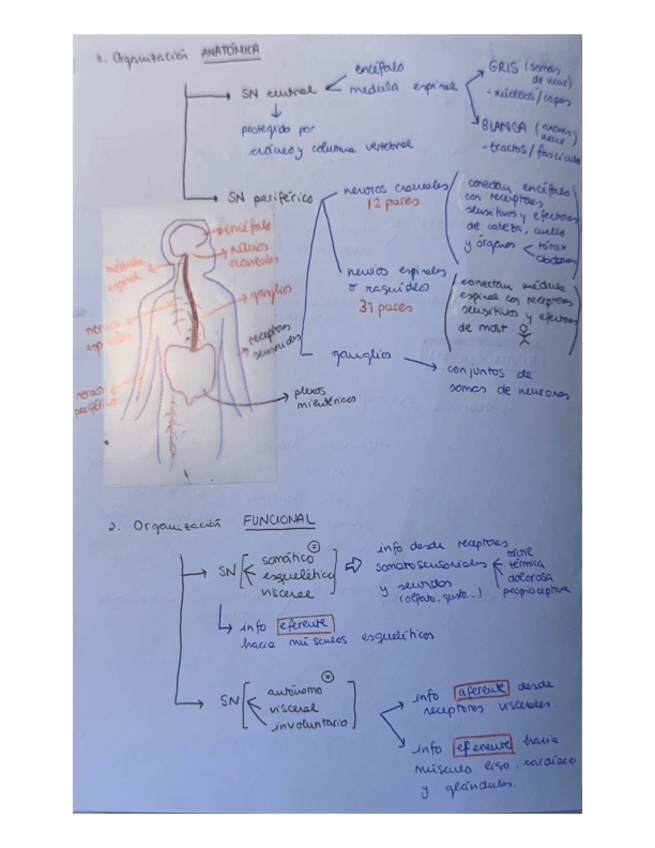 1. Organización ANATÓMICA
SN central
encéfalo
médula espinal
GRIS (somas
de neur)
- núcleos/capas
BLANCA (axones
neur
- tractos/fascículo
protegido por
cráneo y columna vertebral
SN periférico
nervios craneales
12 pares
conectan encéfalo
con receptores
sensitivos y efectores
de cabeza, cuello
y órganos
tórax
abdomen
nervios espinales
o raquídeos
31 pares
conectan médula
espinal con receptores
sensitivos y efectores
de most
ganglios
conjuntos de
somas de neuronas
encéfalo
nervios
craneales
médula
espinal
ganglios
nervios
espinales
receptores
sensoriales
nervios
periférico
plexos
mientéricos
2. Organización FUNCIONAL
SN
somático
esquelético
visceral
info desde receptores
somatosensoriales
y sentidos
(olfato, gusto..)
táctil
térmica
dolorosa
propioceptiva
info eferente
hacia músculos esqueléticos
SN
autónomo
visceral
involuntario
info aferente desde
receptores viscerales
info eferente hacia
músculo liso, cardíaco
y glándulas.